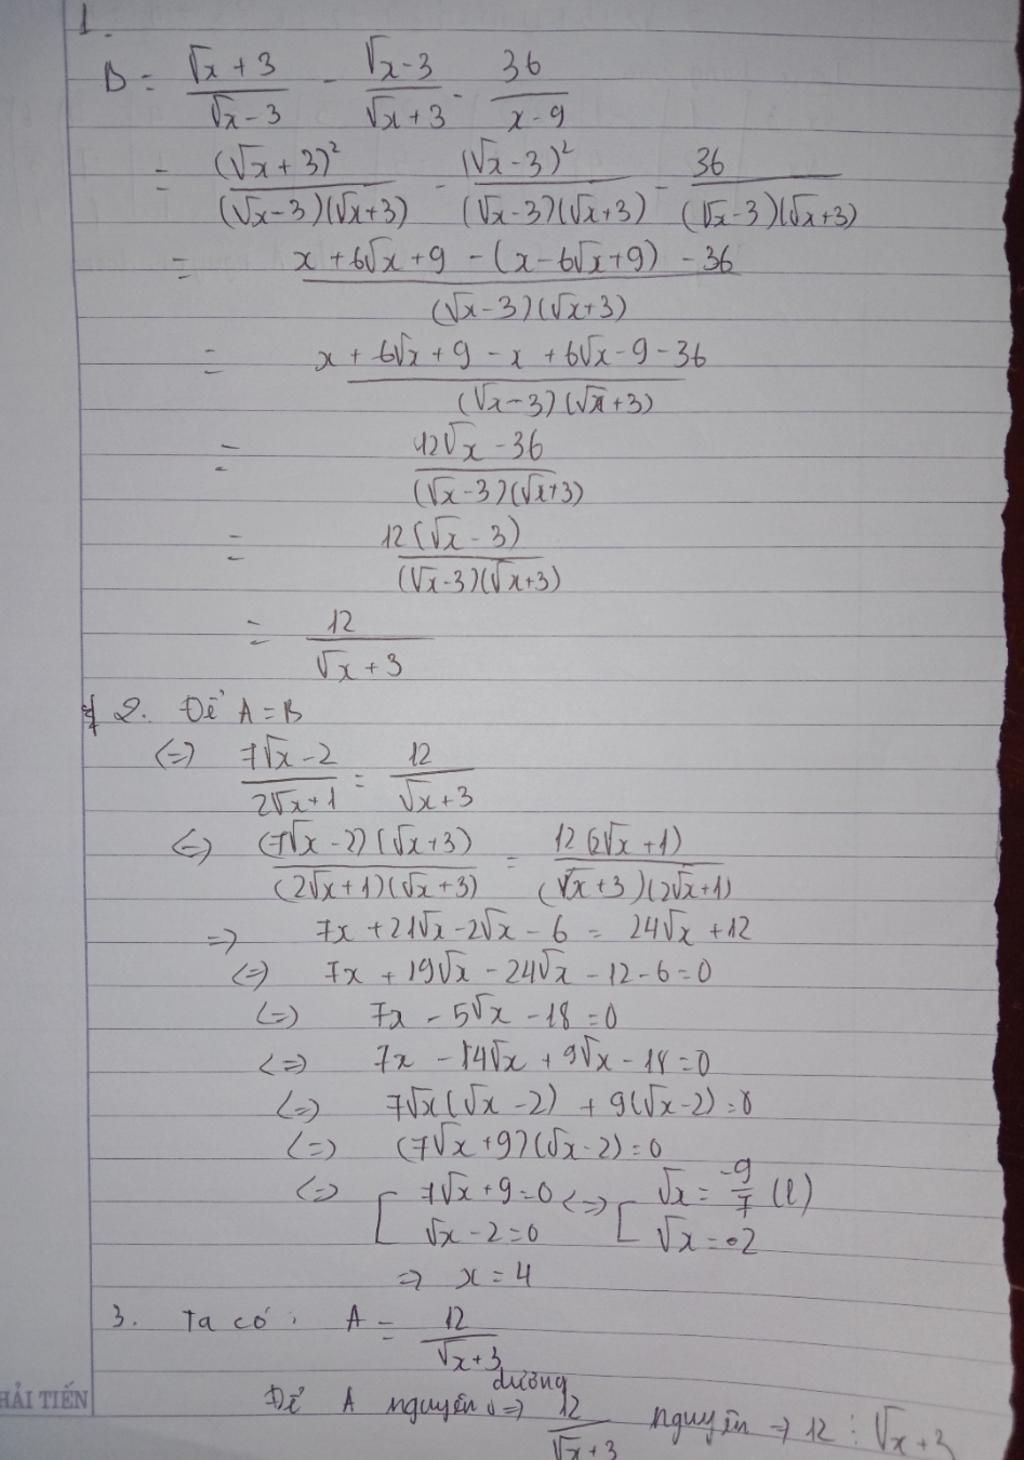 1.
B = (√x + 3)/(√x - 3) - (√x - 3)/(√x + 3) - 36/(x - 9)
= (√x + 3)²/((√x - 3)(√x + 3)) - (√x - 3)²/((√x - 3)(√x + 3)) - 36/((√x - 3)(√x + 3))
= (x + 6√x + 9 - (x - 6√x + 9) - 36)/((√x - 3)(√x + 3))
= (x + 6√x + 9 - x + 6√x - 9 - 36)/((√x - 3)(√x + 3))
= (12√x - 36)/((√x - 3)(√x + 3))
= 12(√x - 3)/((√x - 3)(√x + 3))
= 12/(√x + 3)
2. Để A = B
<=> (7√x - 2)/(2√x + 1) = 12/(√x + 3)
<=> (7√x - 2)(√x + 3)/((2√x + 1)(√x + 3)) = 12(2√x + 1)/((√x + 3)(2√x + 1))
=> 7x + 21√x - 2√x - 6 = 24√x + 12
<=> 7x + 19√x - 24√x - 12 - 6 = 0
<=> 7x - 5√x - 18 = 0
<=> 7x - 14√x + 9√x - 18 = 0
<=> 7√x(√x - 2) + 9(√x - 2) = 0
<=> (7√x + 9)(√x - 2) = 0
<=> [ 7√x + 9 = 0 <=> [ √x = -9/7 (l)
√x - 2 = 0 √x = 2
=> x = 4
3. Ta có : A = 12/(√x + 3)
Để A nguyên dương => 12/(√x + 3) nguyên => 12 ⋮ √x + 3
HẢI TIẾN